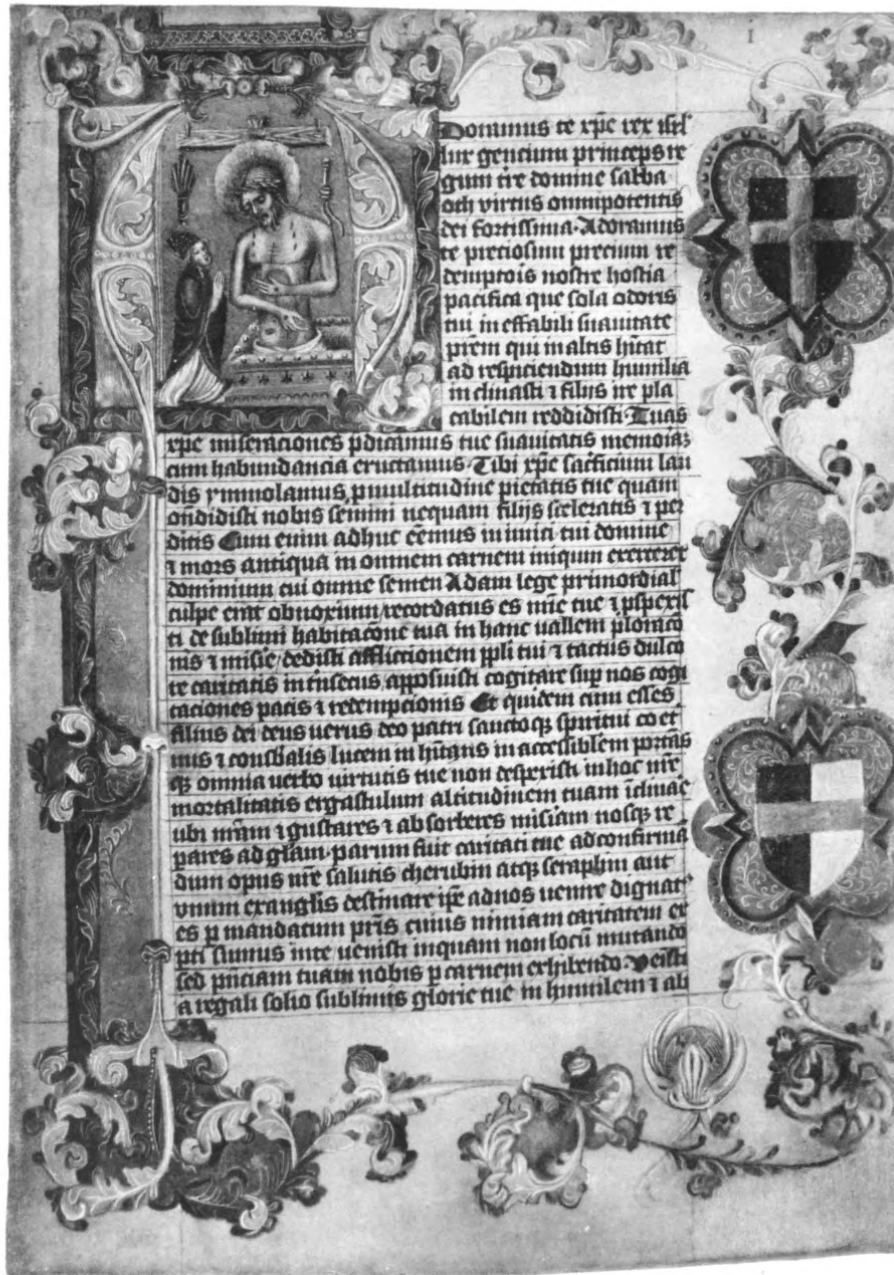 1
Doramus te xp̄e rex isrl̄
lux gencium princeps re
gum tr̄e domine saba
oth virtus omnipotentis
dei fortissima · Adoramus
te preciosum precium re
demptōis nostre hostia
pacifica que sola odoris
tui in effabili suauitate
pr̄em qui in altis hītat
ad respiciendum humilia
in clinasti ⁊ filijs ire pla
cabilem reddidisti · Tuas
xp̄e miseraciones p̄dicamus tue suauitatis memoiaꝫ
cum habundancia eructamus · Tibi xp̄e sac̄ficium lau
dis ymmolamus, p̄ multitudine pietatis tue quam
on̄didisti nobis semini nequam filijs sceleratis ⁊ per
ditis Cum enim adhuc eēmus inimici tui domine
⁊ mors antiqua in omnem carnem iniqum exerceret
dominium cui omne semen Adam lege primordial̄
culpe erat obnoxium / recordatus es mīe tue ⁊ p̄spexis
ti de sublimi habitacōne tua in hanc uallem ploracō
nis ⁊ misīe / vidisti affliccionem pp̄li tui ⁊ tactus dulco
re caritatis intrinsecus, apposuisti cogitare sup̄ nos cogi
taciones pacis ⁊ redempcionis Et quidem cum esses
filius dei deus uerus deo patri sanctoqꝫ spiritui co et
nus ⁊ consb̄alis lucem in hītans in accessiblem portās
qꝫ omnia uerbo uirtutis tue non despexisti in hoc nr̄e
mortalitatis ergastulum altitudinem tuam īclinae
ubi nr̄am ⁊ gustares ⁊ absorberes misīam nosqꝫ re
pares ad gl̄am · parum fuit caritati tue ad confirmā
dum opus nr̄e salutis cherubin atqꝫ seraphin aut
vnum ex angl̄is destinare ip̄e ad nos uenire dignat᷒
es p̄ mandatum pr̄is cuius nimiam caritatem ex
pti sumus in te / uenisti inquam non locū mutando
sed pn̄ciam tuam nobis p̄ carnem exhibendo · Veīsti
a regali solio sublimis glorie tue in humilem ⁊ ab